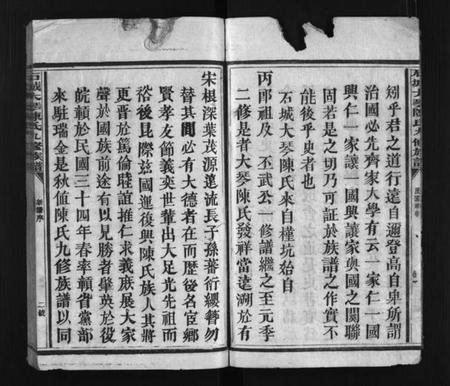 石城大琴陳氏九修族譜
矧乎君之道行遠自邇登高自卑所謂
治國必先齊家大學有云一家仁一國
興仁一家讓一國興讓家與國之關聯
固若是之切乃可証於族譜之作實不
能後乎史者也
石城大琴陳氏來自橦坑始自
丙郎祖及 丕武公一修譜繼之至元季
二修是者大琴陳氏發祥當遠溯於有
宋根深葉茂源遠流長子孫蕃衍纓簪勿
替其間必有大德者在而歷後名宦鄉
賢孝友節義奕世輩出大足光先祖而
裕後昆際茲國運復興陳氏族人其將
更晋於篤倫睦誼推仁求義族展大家
聲於國族前途有以見勝者肇英於役
皖贛於民國三十四年春率贛省黨部
來駐瑞金是秋値陳氏九修族譜以同
石城大琴陳氏九修族譜
二號